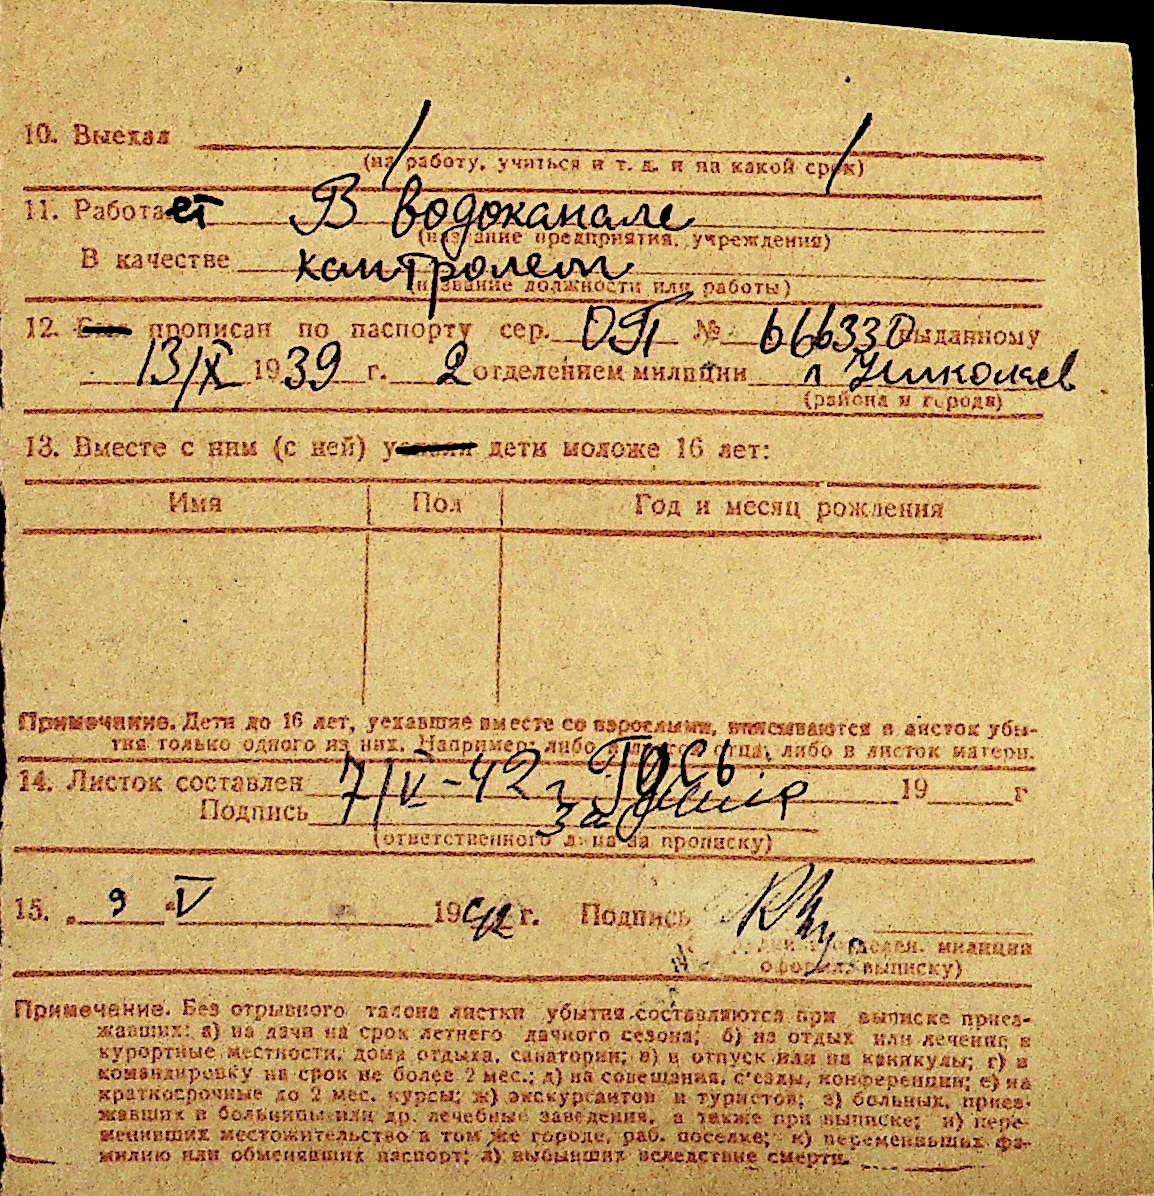 10. Выехал
(на работу, учиться и т. д. и на какой срок)
11. Работает В водоканале
(название предприятия, учреждения)
В качестве контролем
(название должности или работы)
12. прописан по паспорту сер. ОЯП № 666330 выданному
13/IX 1939 г. 2 отделением милиции г Николаев
(района и города)
13. Вместе с ним (с ней) дети моложе 16 лет:
Имя Пол Год и месяц рождения
Примечание. Дети до 16 лет, уехавшие вместе со взрослыми, вписываются в листок убы-
тия только одного из них. Например: либо в листок отца, либо в листок матери.
14. Листок составлен 7/V-42 г 19 г
Подпись
(ответственного лица за прописку)
15. „ 9 “ V 1942 г. Подпись
милиции
выписку)
Примечание. Без отрывного талона листки убытия составляются при выписке приез-
жавших: а) на дачи на срок летнего дачного сезона; б) на отдых или лечение в
курортные местности, дома отдыха, санатории; в) в отпуск или на каникулы; г) в
командировку на срок не более 2 мес.; д) на совещания, с'езды, конференции; е) на
краткосрочные до 2 мес. курсы; ж) экскурсантов и туристов; з) больных, приез-
жавших в больницы или др. лечебные заведения, а также при выписке; и) пере-
менивших местожительство в том же городе, раб. поселке; к) переменивших фа-
милию или обменявших паспорт; л) выбывших вследствие смерти.